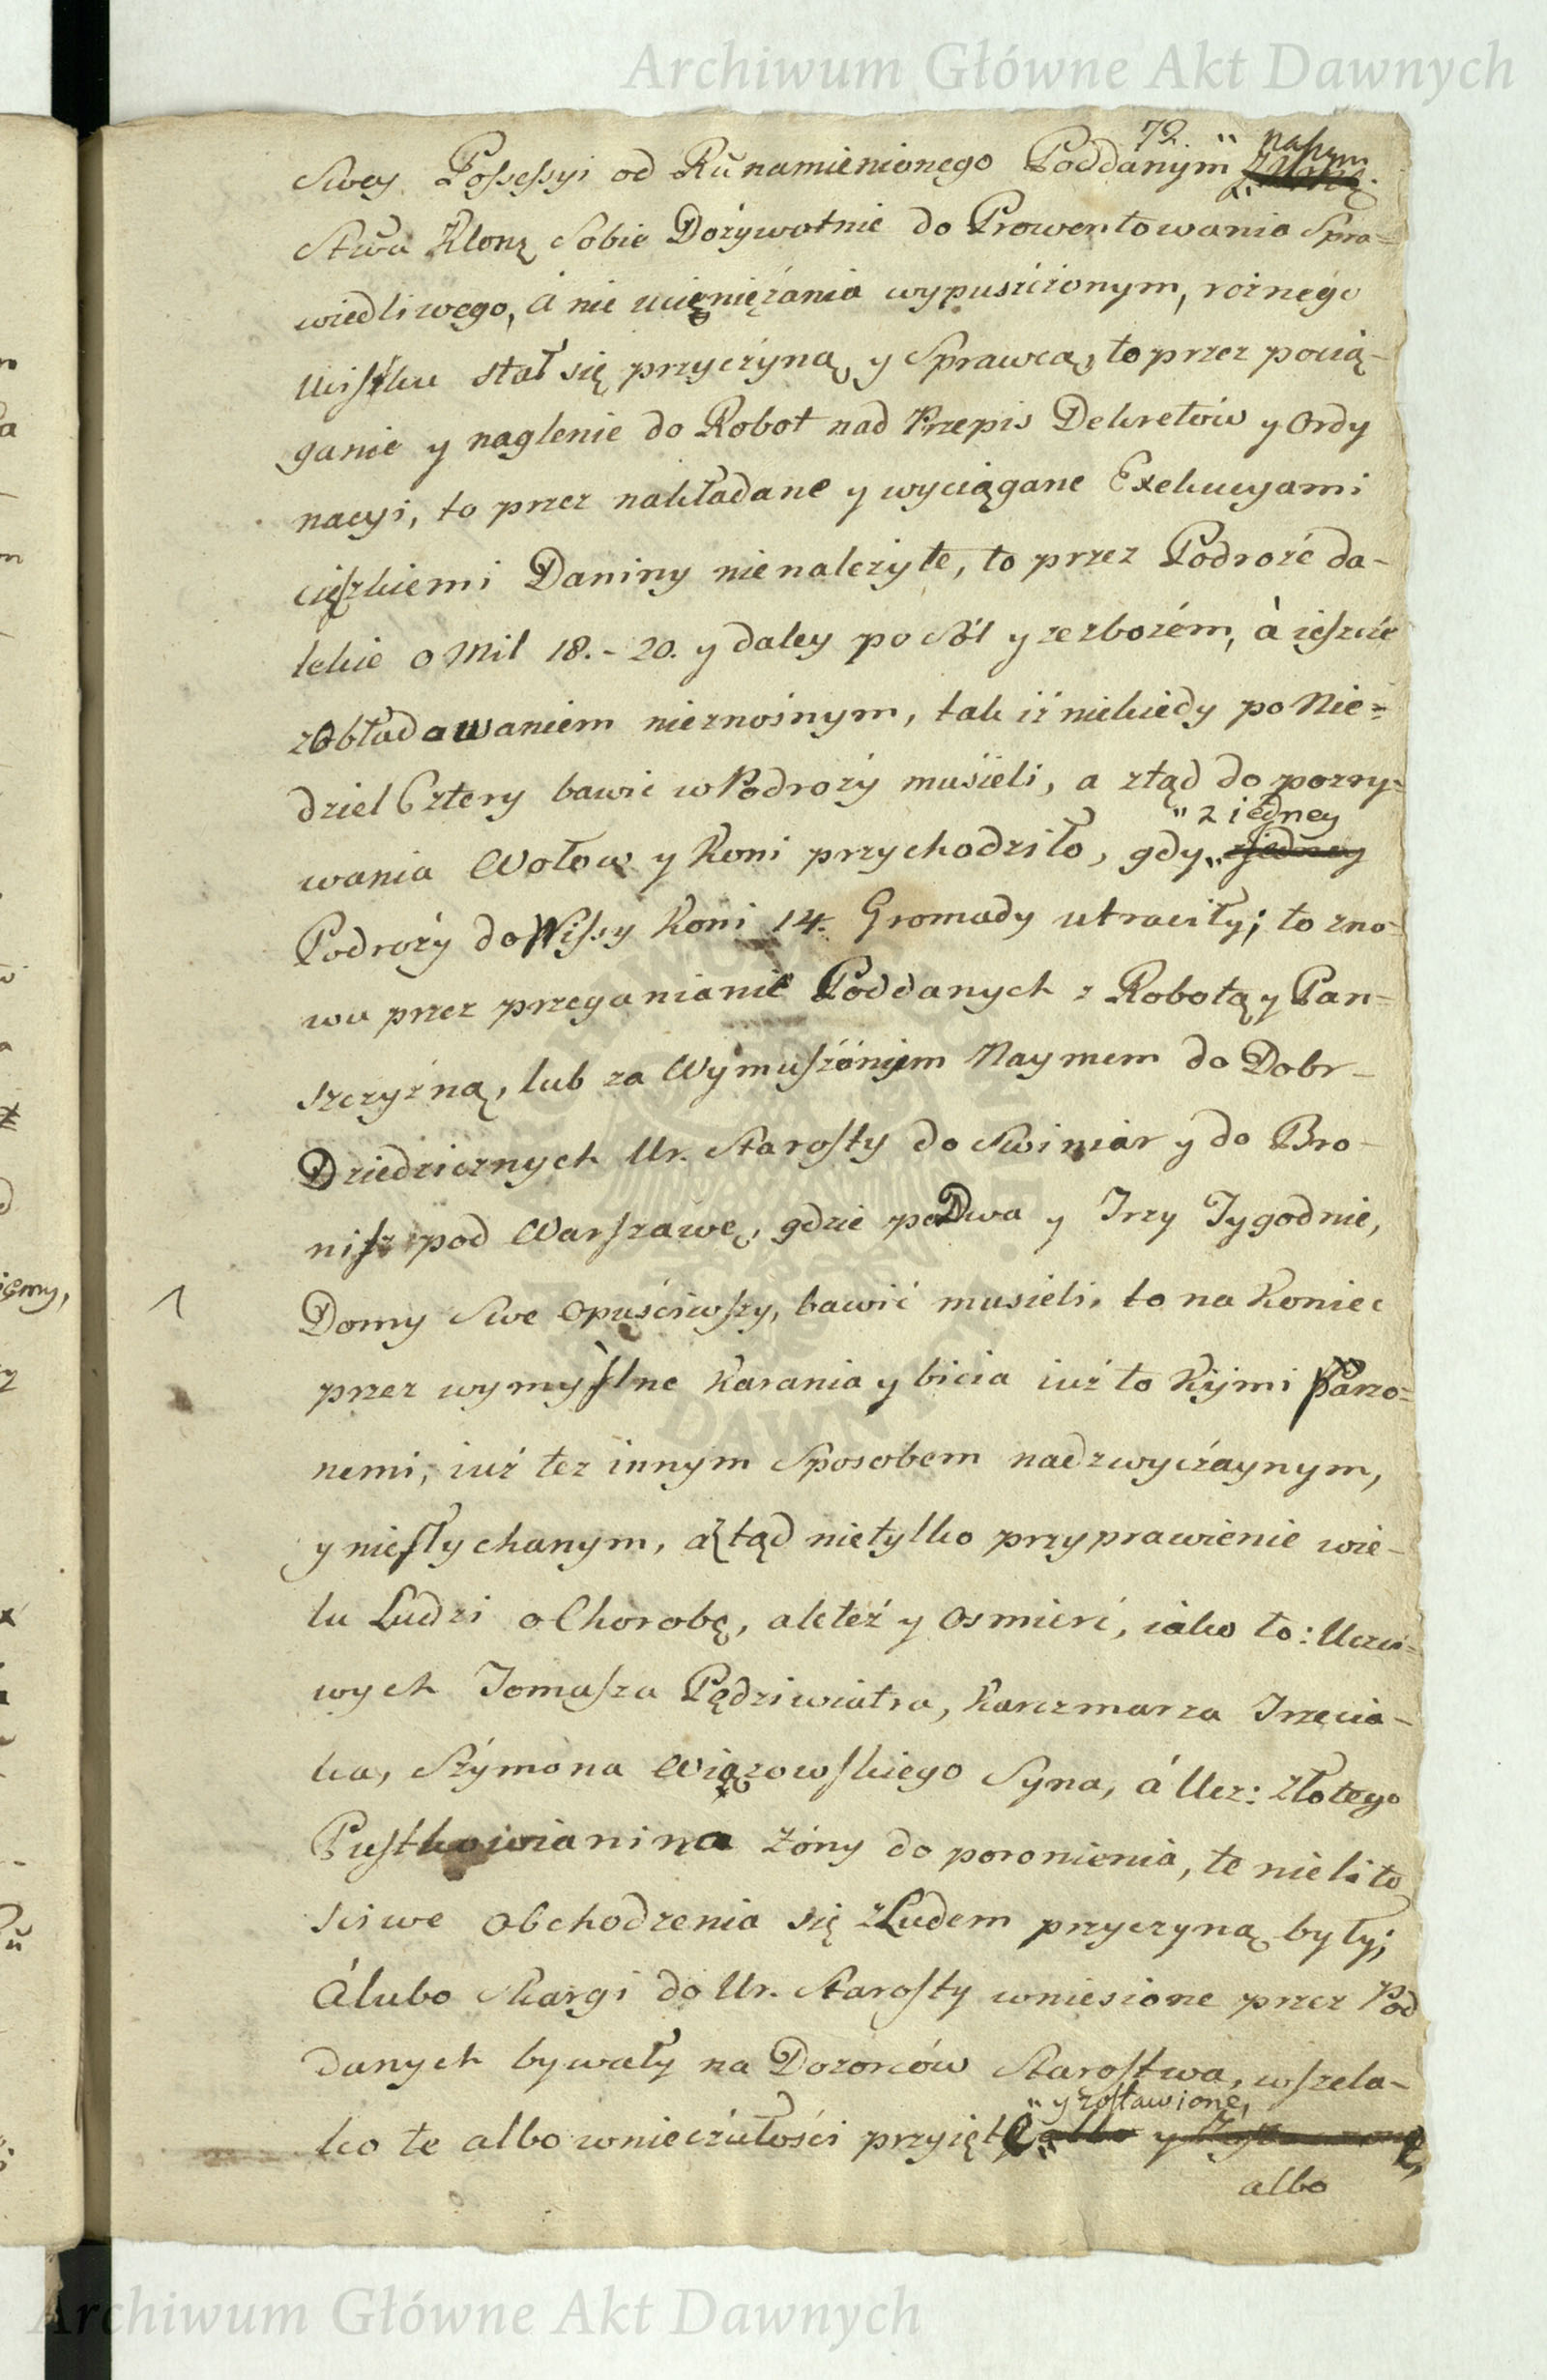 Archiwum Główne Akt Dawnych
72.
Swey Possessyi od Ru namienionego Poddanym " naszym
Stwa Kloną Sobie Dożywotnie do Prowentowania Spra=
wiedliwego, á nie uciężania wypuszczonym, rożnego
Ucisku stał się przyczyną y Sprawcą, to przez pocią-
ganie y naglenie do Robot nad Przepis Dekretów y Ordy
nacyi, to przez nakładane y wyciągane Exekucyami
ciężkiemi Daniny nienależyte, to przez Podroże da-
lekie o Mil 18.-20. y daley po Sól y ze zbożem, à ieszcze
z Obładawaniem nieznośnym, tak iż niekiedy po Nie=
dziel Cztery bawić w Podroży musieli, a ztąd do pozry=
" z iedney
wania Wołow y Koni przychodziło, gdy " z jedney
Podroży do Wissy Koni 14. Gromady utraciły; to zno-
wu przez przeganianie Poddanych z Robotą y Pan=
szczyzną, lub za Wymuszonym Naymem do Dobr-
Dziedzicznych Ur. Starosty do Swiniar y do Bro-
nisz pod Warszawę, gdzie po Dwa y Trzy Tygodnie,
Domy Swe Opuściwszy, bawić musieli, to na Koniec
przez wymyślne Karania y bicia iuż to Kijmi Parzo=
nemi, iuż tez innym Sposobem nadzwyczaynym,
y niesłychanym, a ztąd nietylko przyprawienie wie-
lu Ludzi o Chorobę, ale też y o smierć, iako to: Uczci=
wych Tomasza Pędziwiatra, Karczmarza Trzecia-
ka, Szymona Wiązowskiego Syna, á Ucz: Złotego
Pustkowianina Żony do poronienia, te nielito
sciwe Obchodzenia się z Ludem przyczyną były;
Álubo Skargi do Ur. Starosty wniesione przez Pod
danych bywały na Dozorców Starostwa, wszela-
" y zostawione,
ko te albo w nieczułości przyięte " albo y Zostawione,
albo
Archiwum Główne Akt Dawnych